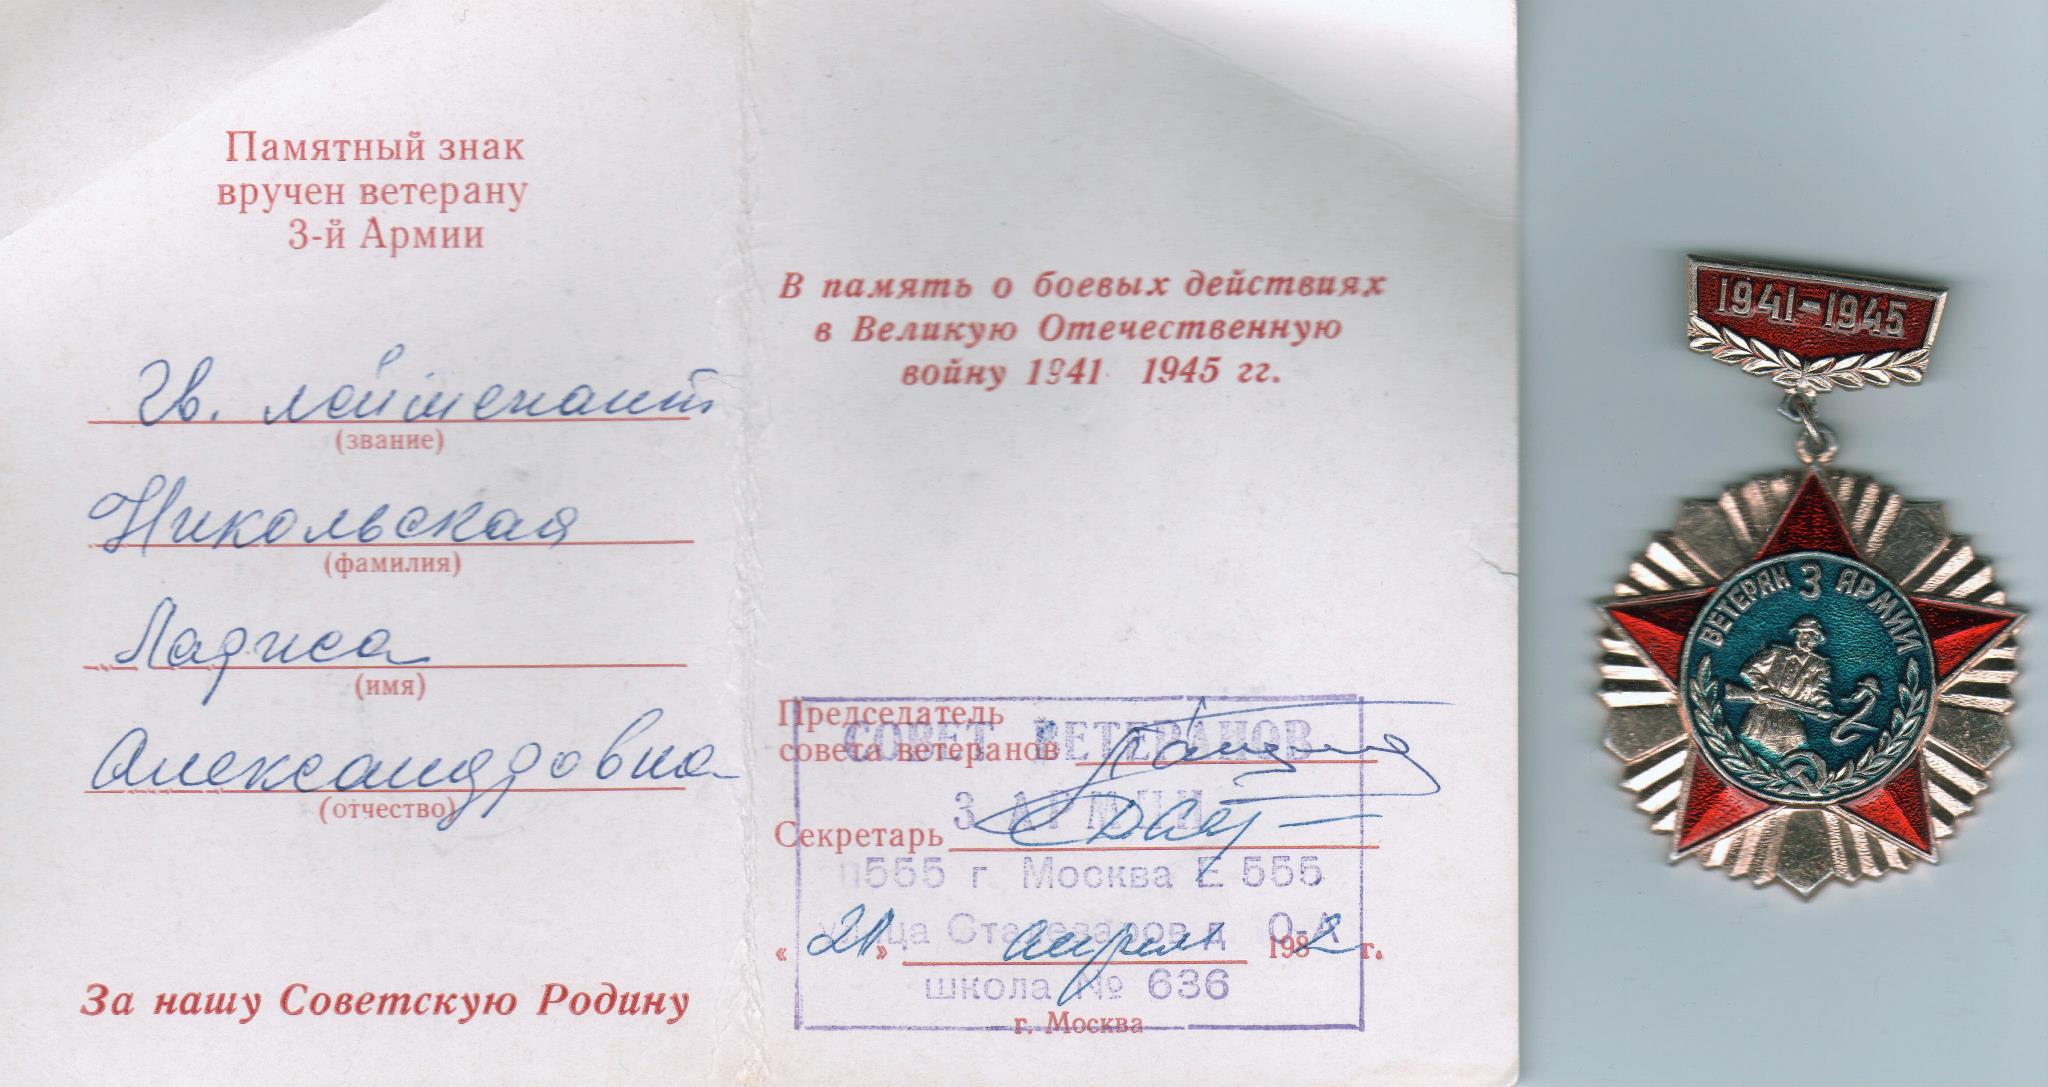 Памятный знак
вручен ветерану
3-й Армии
Гв. лейтенант
(звание)
Никольская
(фамилия)
Лариса
(имя)
Александровна
(отчество)
За нашу Советскую Родину
В память о боевых действиях
в Великую Отечественную
войну 1941 1945 гг.
Председатель
совета ветеранов
Секретарь
« 21 » апреля 1982 г.
г. Москва
СОВЕТ ВЕТЕРАНОВ
3 АРМИИ
555 г Москва Е 555
улица Сталеваров д 0-А
школа № 636
1941-1945
ВЕТЕРАН 3 АРМИИ